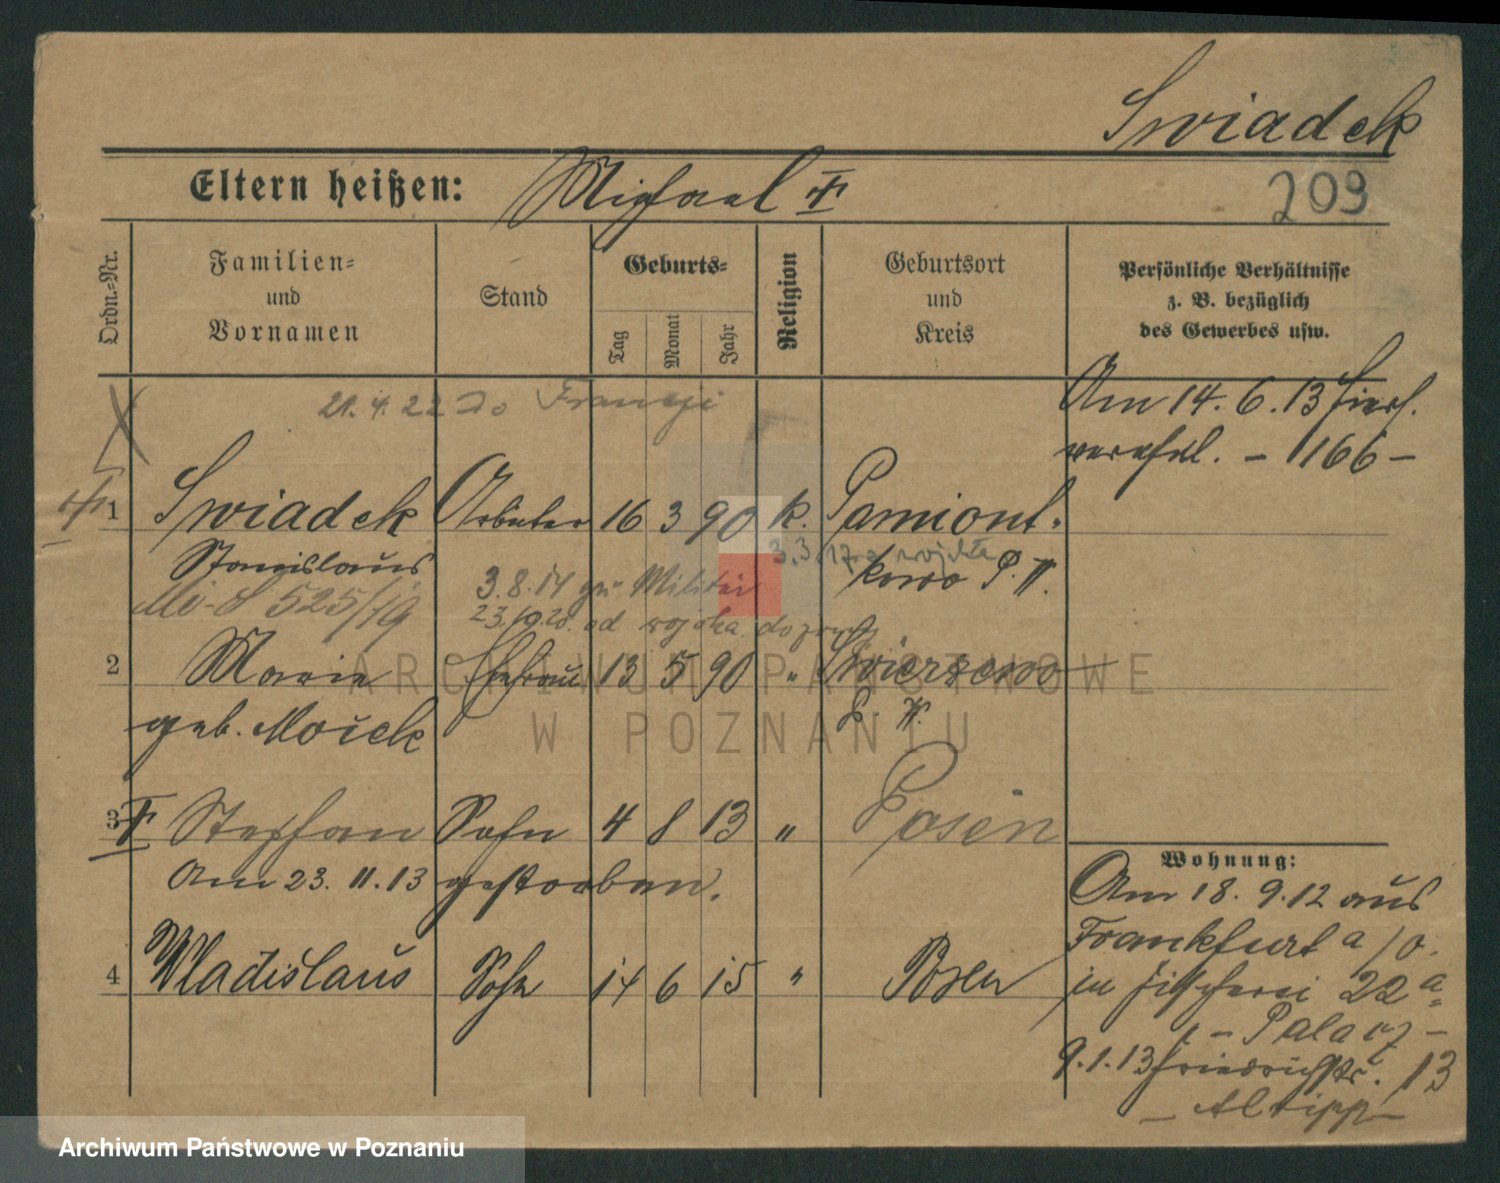 Swiadek
Eltern heißen: Michael
209
Ordn.-Nr.
Familien-
und
Vornamen
Stand
Geburts-
Tag
Monat
Jahr
Religion
Geburtsort
und
Kreis
Persönliche Verhältnisse
z. B. bezüglich
des Gewerbes usw.
21.4.22 do Francji
Am 14.6.13 hiers.
verehel. - 166 -
1 Swiadek Arbeiter 16 3 90 k. Pamiont-
3.3.17 z wojska
Stanislaus kowo P. W.
525/19
3.8.14 zu Militär
23.10.20. od wojska do
2 Marie Ehefrau 13 5 90 " Swierzewo
geb. Moick P. W.
3 Stephan Sohn 4 8 13 " Posen
Am 23.11.13 gestorben.
4 Wladislaus Sohn 14 6 15 " Posen
Wohnung:
Am 18.9.12 aus
Frankfurt a/O.
in Fischerei 22a
- Palacz -
9.1.13 Friedrichstr. 13
ARCHIWUM PAŃSTWOWE
W POZNANIU
Archiwum Państwowe w Poznaniu